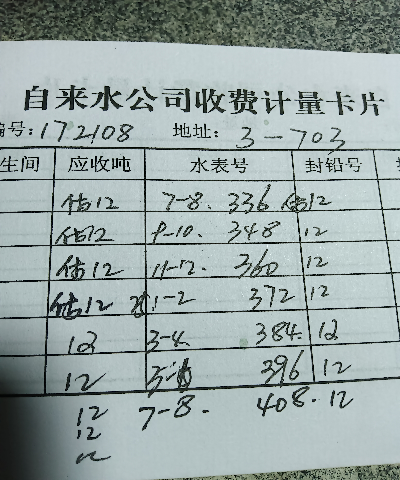 自来水公司收费计量卡片
编号:172108 地址:3-703
生间 应收吨 水表号 封铅号
估12 7-8. 336 估12
估12 9-10. 348 12
估12 11-12. 360 12
估12 1-2 372 12
12 3-4 384. 12
12 5-6 396 12
12 7-8. 408. 12
12
12